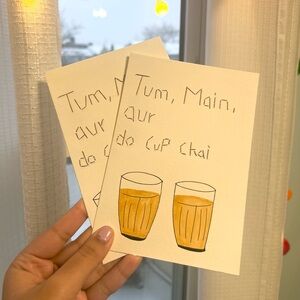 Tum, Main,
aur
do Cup Chai
Tum, M
aur
do C